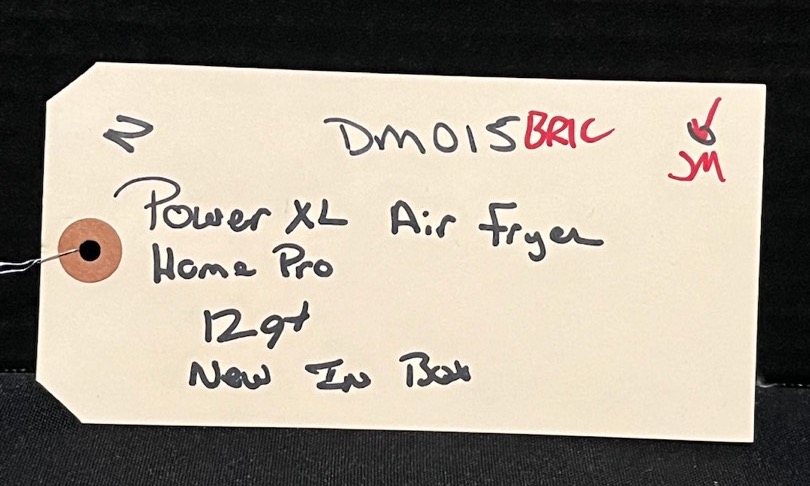 N DM015BRIC
JM
Power XL Air Fryer
Home Pro
12 qt
New In Box